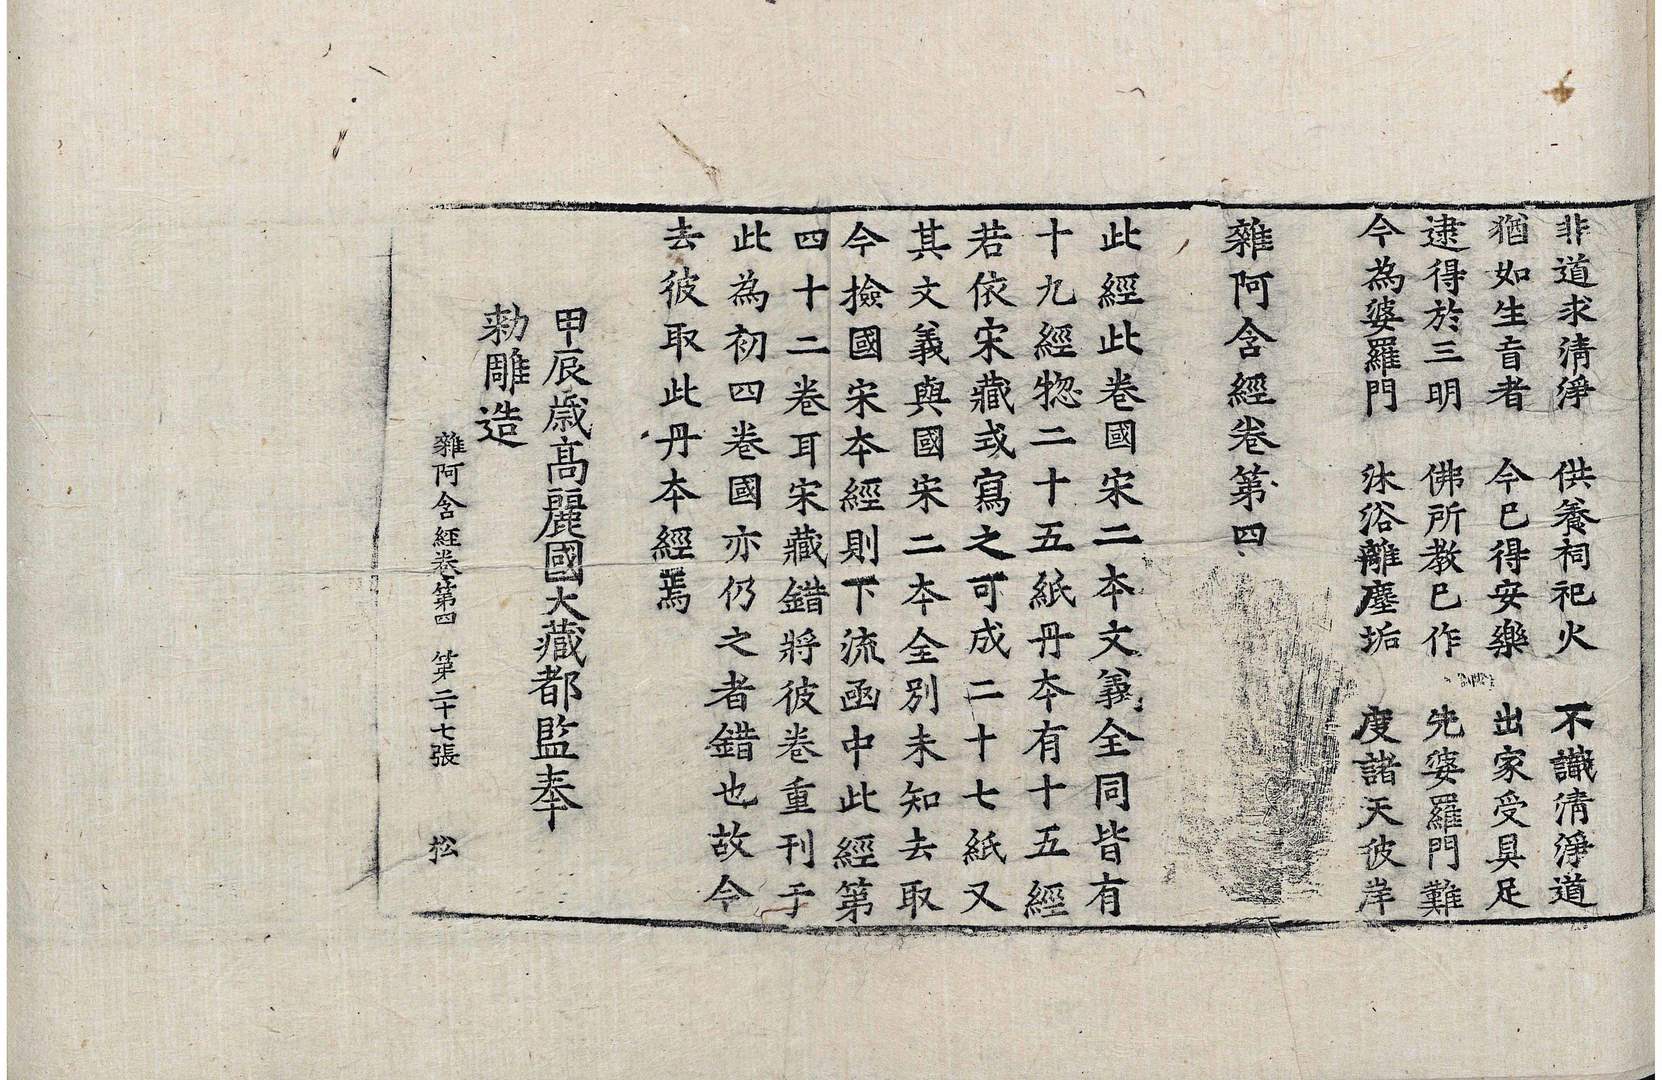 非道求清淨　供養祠祀火　不識清淨道
猶如生盲者　今已得安樂　出家受具足
逮得於三明　佛所教已作　先婆羅門難
今為婆羅門　沐浴離塵垢　度諸天彼岸
雜阿含經卷第四
此經此卷國宋二本文義全同皆有
十九經惣二十五紙丹本有十五經
若依宋藏或寫之可成二十七紙又
其文義與國宋二本全別未知去取
今撿國宋本經則下流函中此經第
四十二卷耳宋藏錯將彼卷重刊于
此為初四卷國亦仍之者錯也故今
去彼取此丹本經焉
甲辰歲高麗國大藏都監奉
勑雕造
雜阿含經卷第四　第二十七張　松